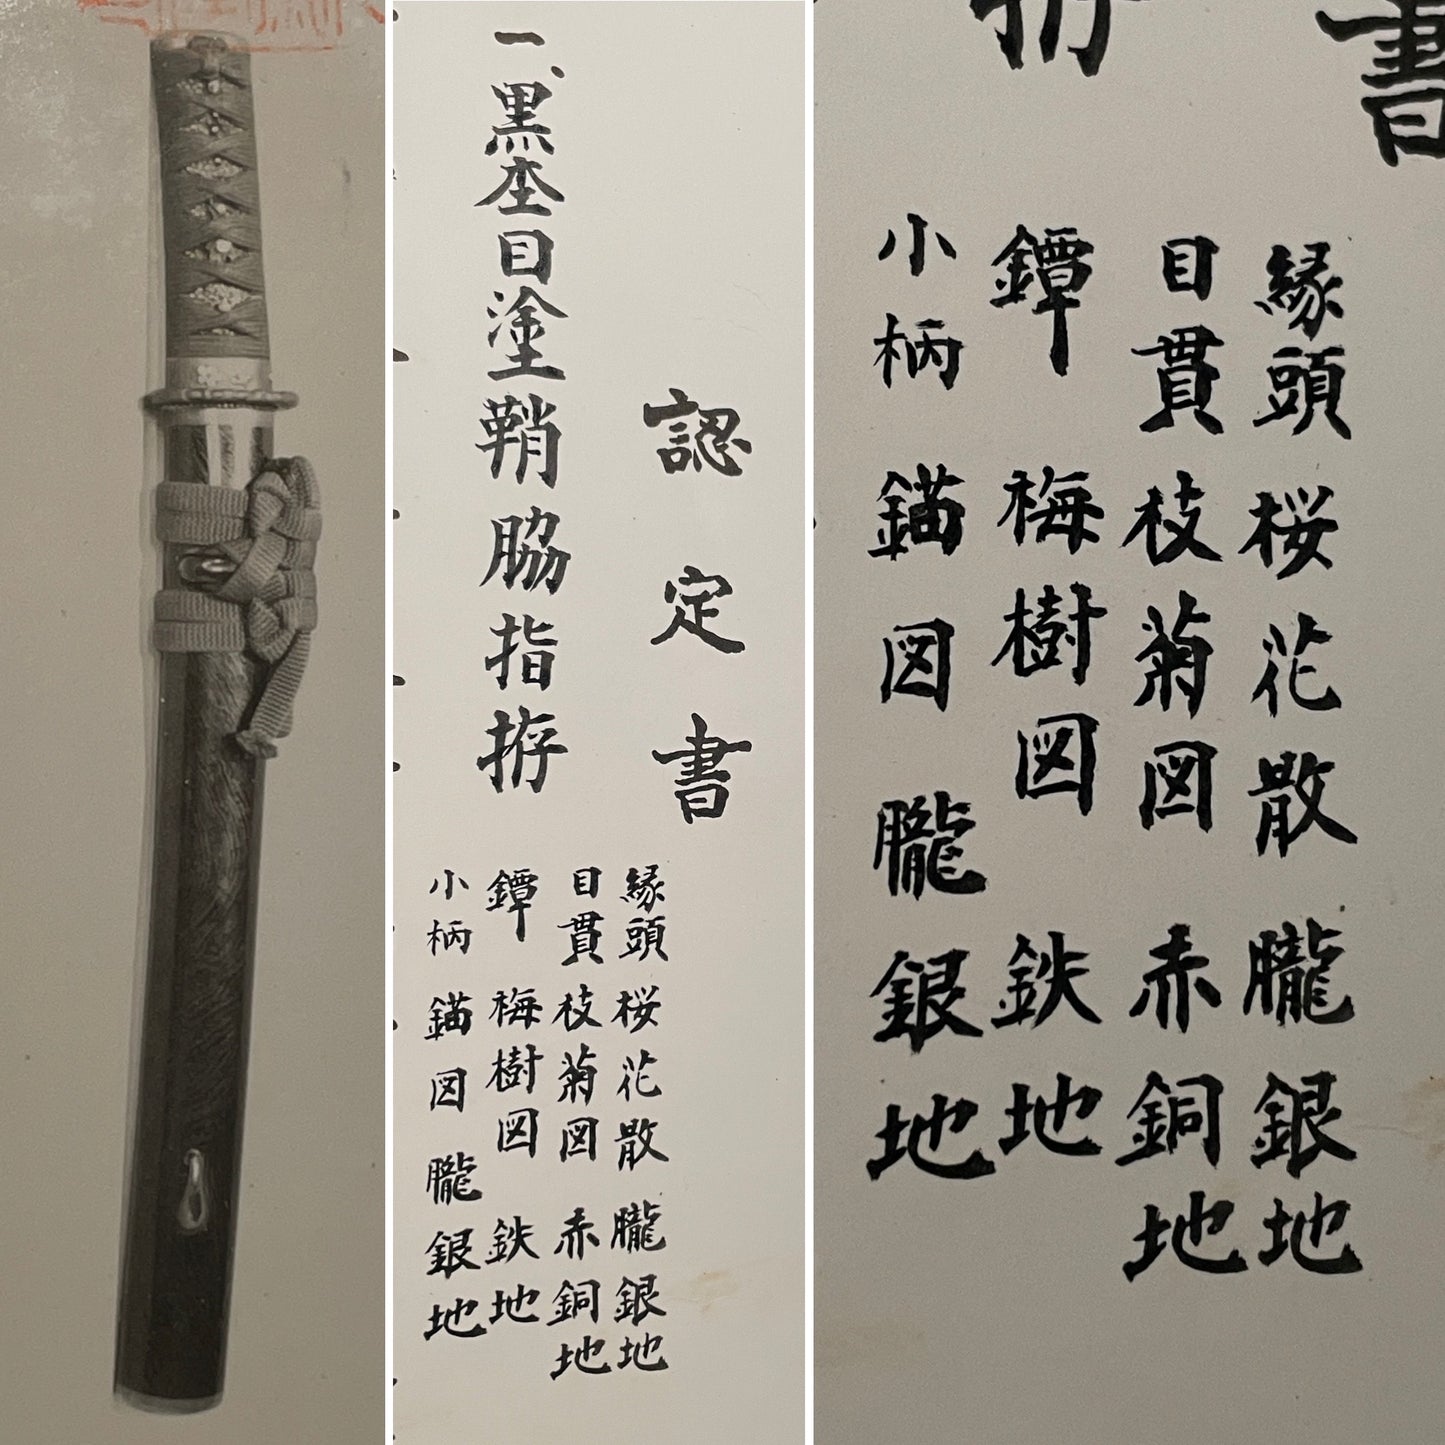 認定書
一、黒杢目塗鞘脇指拵
縁頭 桜花散 朧銀地
目貫 枝菊図 赤銅地
鐔 梅樹図 鉄地
小柄 錨図 朧銀地
書
縁頭 桜花散 朧銀地
目貫 枝菊図 赤銅地
鐔 梅樹図 鉄地
小柄 錨図 朧銀地